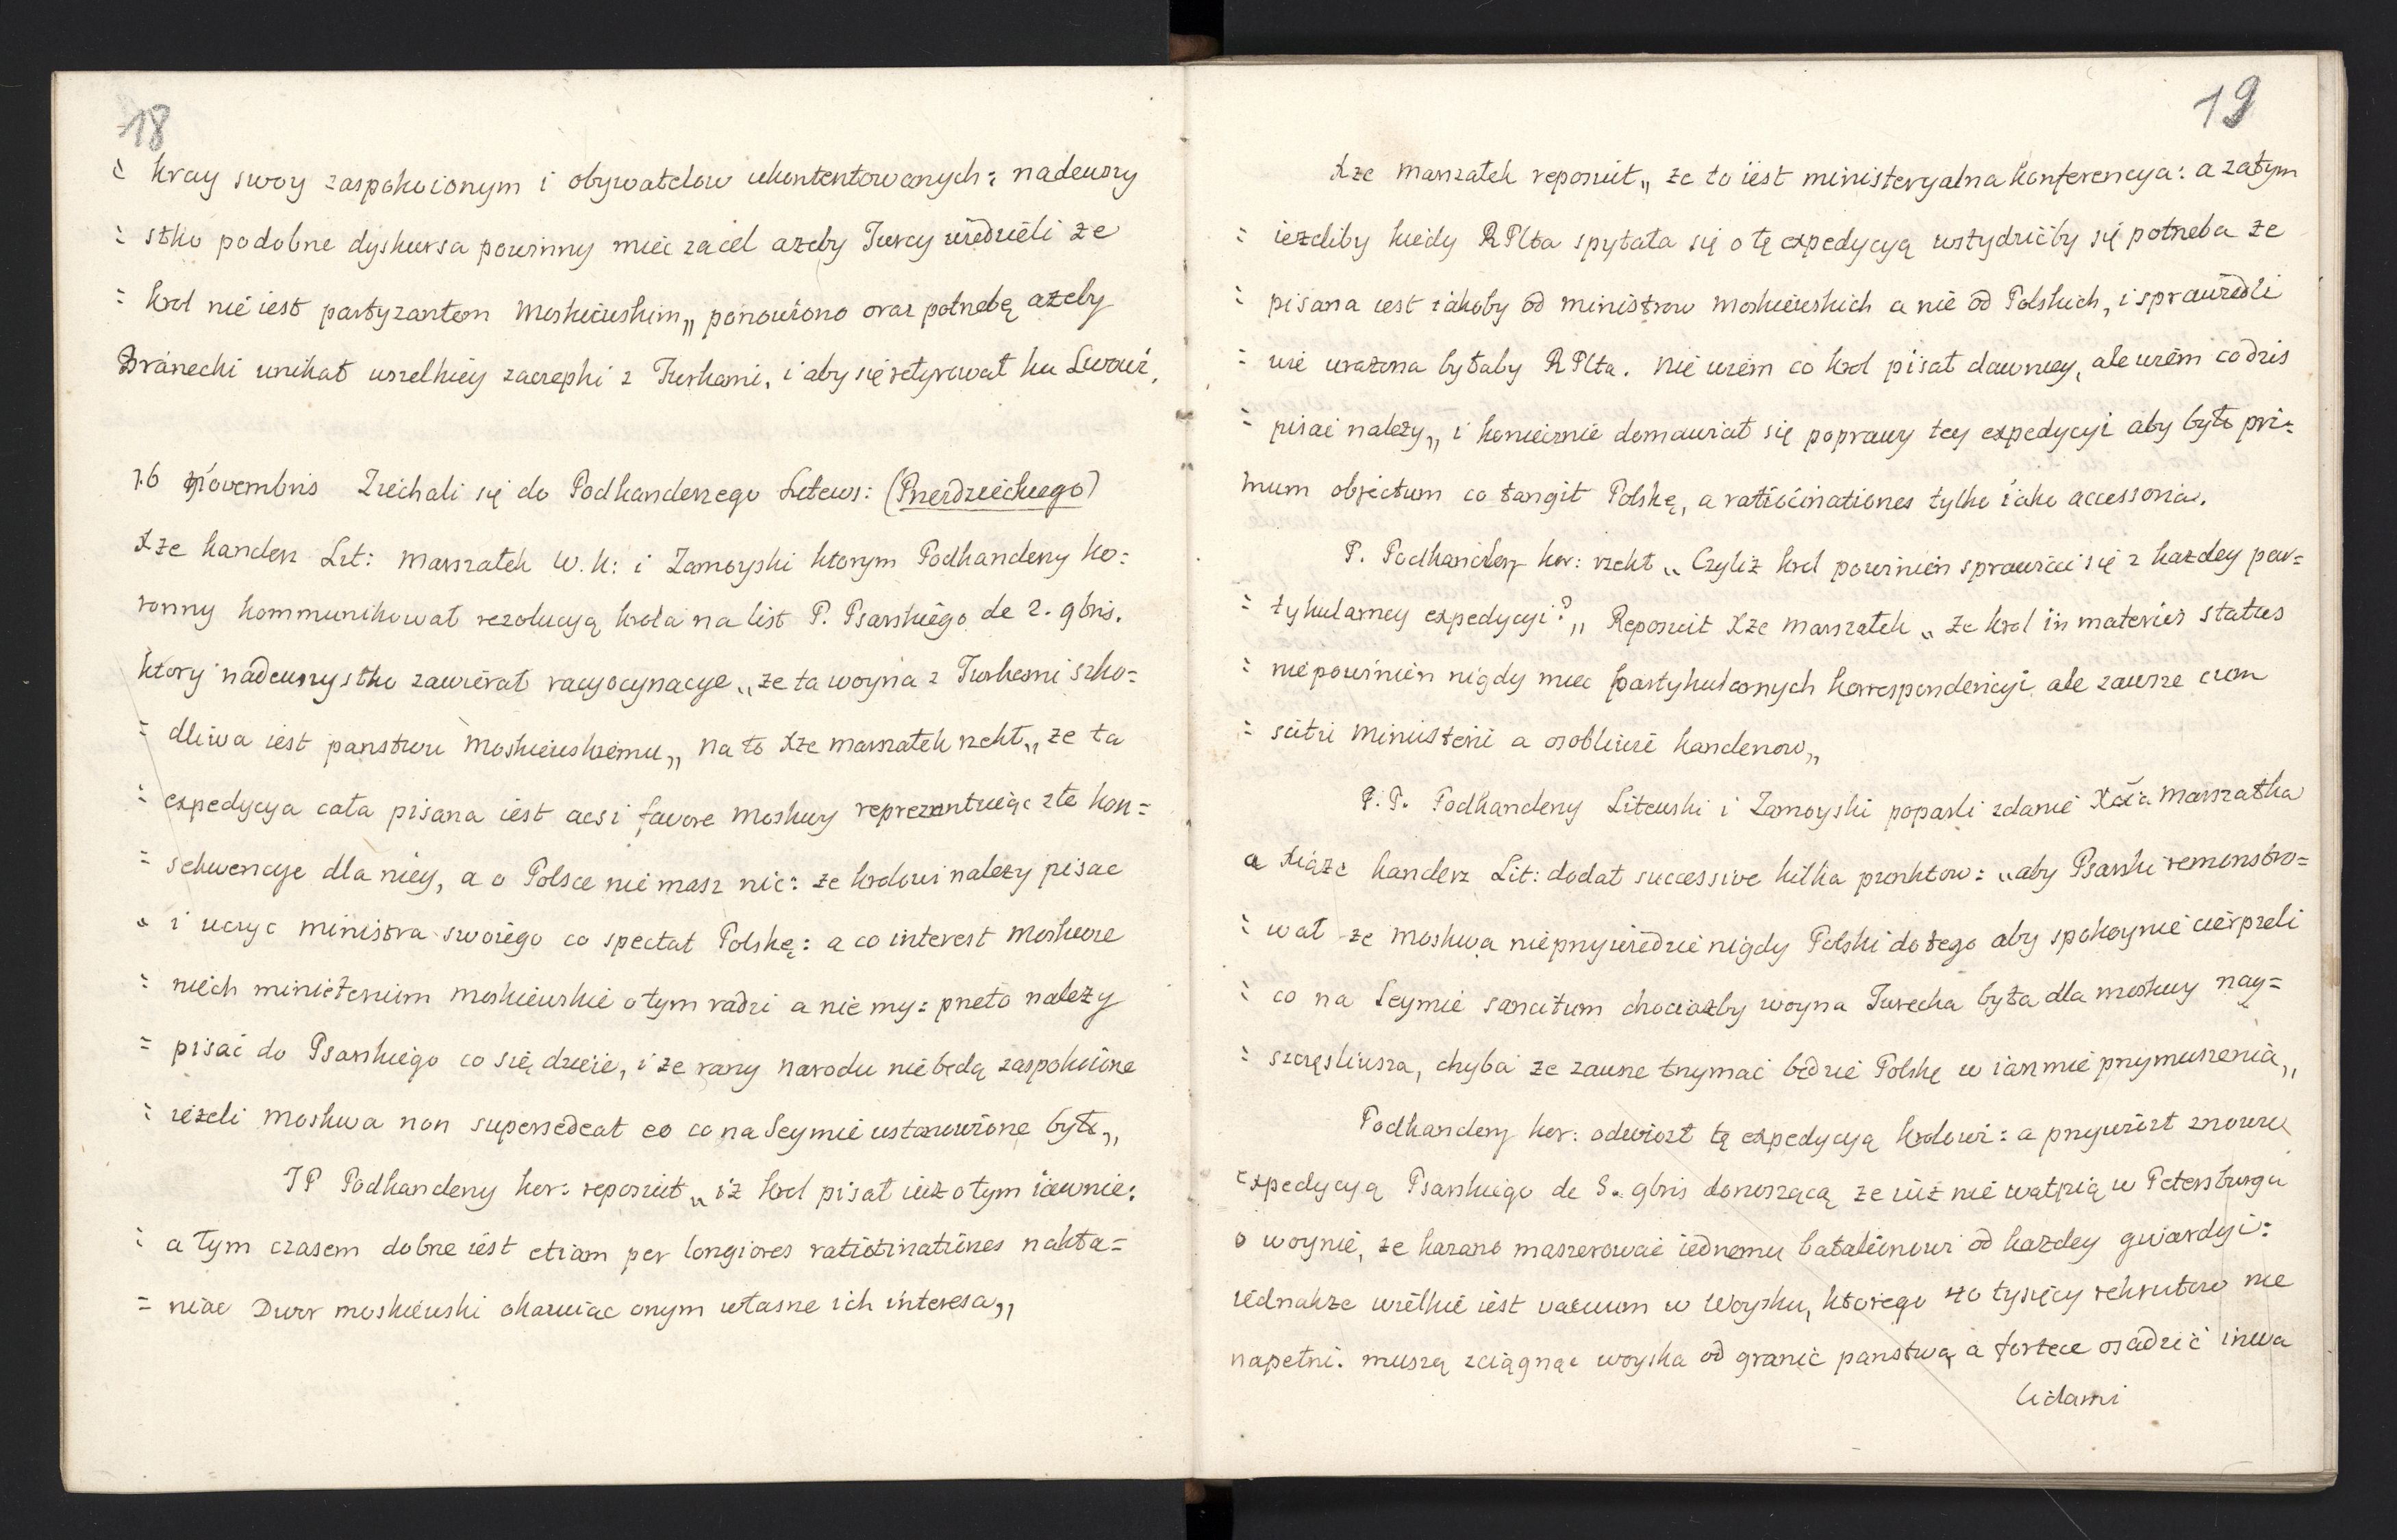 18
: kray swoy zaspokoionym i obywatelow ukontentowanych: nadewszy
: stko podobne dyskursa powinny miec za cel azeby Turcy wiedzieli ze
= krol nie iest partyzantem Moskiewskim„ ponowiono oraz potrzebą ażeby
Branecki unikał wszelkiey zaczepki z Turkami, i aby się retyrował ku Lwowi.
16 Novembris Ziechali się do Podkanclerzego Litews: (Przezdzieckiego)
Xze kanclerz Lit: Marszałek W. K: i Zamoyski ktorym Podkanclerzy ko=
ronny kommunikował rezolucyą krola na list P. Psarskiego de 2. 9bris.
ktory nadewszystko zawierał racyocynacye „ze ta woyna z Turkami szko=
= dliwa iest panstwu Moskiewskiemu„ na to Xze marszałek rzekł„ ze ta
: expedycya cała pisana iest acsi favore Moskwy reprezentuiąc złe kon=
= sekwencye dla niey, a o Polsce nie masz nic: ze krolowi nalezy pisac
" i uczyc ministra swoiego co spectat Polskę: a co interest Moskwie
: niech ministerium moskiewskie o tym radzi a nie my: przeto nalezy
= pisać do Psarskiego co się dzieie, i ze rany narodu nie będą zaspokoione
: iezeli Moskwa non supersedeat eo co na Seymie ustanowione było„
JP Podkanclerzy kor: reposuit „iż krol pisał iuz o tym iawnie:
: a tym czasem dobrze iest etiam per longiores ratiotinationes nakła=
= niac Dwor moskiewski okazuiac onym własne ich interesa„
19
Xze marszałek reposuit„ ze to iest ministeryalna konferencya: a zatym
: iezeliby kiedy RPlta spytała się o tę expedycyą wstydzićby się potrzeba ze
: pisana iest iakoby od ministrow moskiewskich a nie od Polskich, i sprawiedli
= wie urażona byłaby RPlta. Nie wiem co krol pisał dawniey, ale wiem co dzis
= pisać należy„ i koniecznie domawiał się poprawy tey expedycyi aby było pri=
mum objectum co tangit Polskę, a ratiocinationes tylko iako accessoria.
P. Podkanclerzy kor: rzekł „Czyliż krol powinien sprawiać się z kazdey par=
= tykularney expedycyi?„ Reposuit Xze marszałek „ze krol in materies status
: nie powinien nigdy miec partykularnych korrespondencyi ale zawsze cum
= scitu Ministerii a osobliwie kanclerzow„
P. P. Podkanclerzy Litewski i Zamoyski poparli zdanie Xcia Marszałka
a Xiąże kanclerz Lit: dodał successive kilka punktow: „aby Psarski remonstro=
: wał ze Moskwa nieprzywiedzie nigdy Polski do tego aby spokoynie cierpieli
: co na Seymie sancitum chociażby woyna Turecka była dla moskwy nay=
: szczęsliwsza, chyba ze zawsze trzymać będzie Polskę w iarzmie przymuszenia„
Podkanclerzy kor: odwiozł tę expedycyą krolowi: a przywiozł znowu
expedycyą Psarskiego de 8. 9bris donoszącą ze iuż nie wątpią w Petersburgu
o woynie, ze kazano maszerować iednemu batalionowi od kazdey gwardyi:
iednakże wielkie iest vacuum w Woysku, ktorego 40 tysięcy rekrutow nie
napełni. muszą zciągnąc woyska od granic panstwa a fortece osadzić inwa
lidami